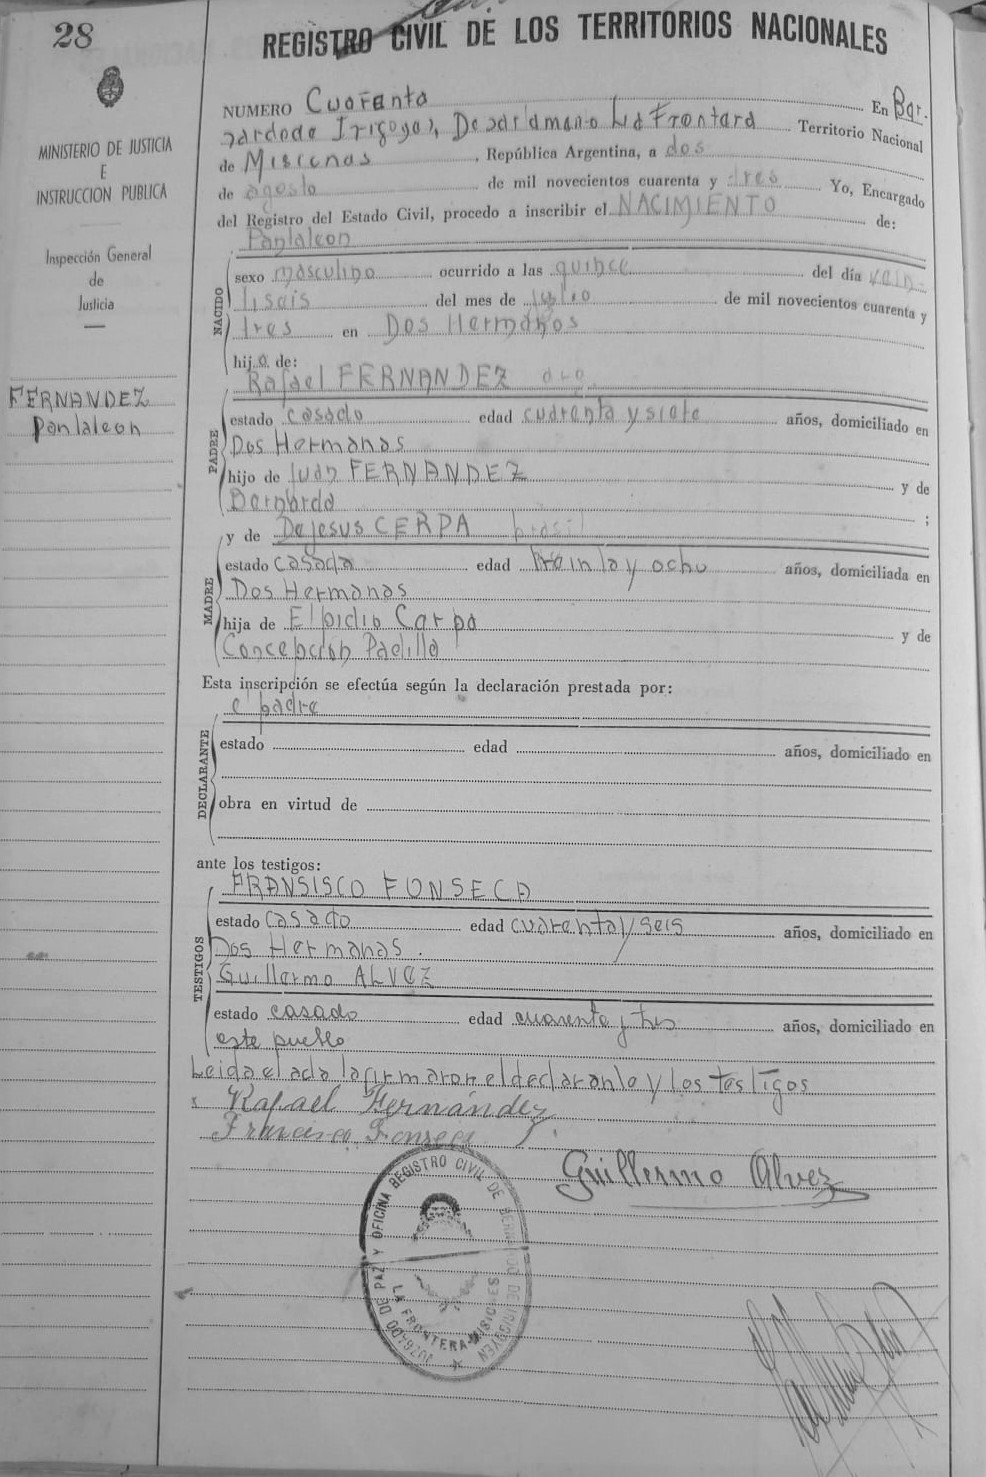 28
REGISTRO CIVIL DE LOS TERRITORIOS NACIONALES
MINISTERIO DE JUSTICIA
E
INSTRUCCION PUBLICA
Inspección General
de
Justicia
FERNANDEZ
Pantaleon
NUMERO Cuarenta En Ber.
nardodo Irigoyen, Departamano La Frontara Territorio Nacional
de Misionas, República Argentina, a dos
de agosto de mil novecientos cuarenta y tres Yo, Encargado
del Registro del Estado Civil, procedo a inscribir el NACIMIENTO de:
Pantaleon
NACIDO
sexo masculino ocurrido a las quince del día vein-
tiseis del mes de julio de mil novecientos cuarenta y
tres en Dos Hermanos
hijo de:
Rafael FERNANDEZ arg.
PADRE
estado casado edad cuarenta y siete años, domiciliado en
Dos Hermanas
hijo de Juan FERNANDEZ y de
Bernarda ;
y de DeJesus CERPA brasil
MADRE
estado casada edad treinta y ocho años, domiciliada en
Dos Hermanas
hija de Elpidio Carpa y de
Concepcion Padilla
Esta inscripción se efectúa según la declaración prestada por:
el padre
DECLARANTE
estado edad años, domiciliado en
obra en virtud de
ante los testigos:
FRANSISCO FONSECA
TESTIGOS
estado casado edad cuarenta y seis años, domiciliado en
Dos Hermanas.
Guillermo ALVEZ
estado casado edad cuarenta y tres años, domiciliado en
este pueblo
Leida el acta la firmaron el declaranto y los testigos
Rafael Fernández
Francisco Fonseca
Guillermo Alvez
JUZGADO DE PAZ Y OFICINA REGISTRO CIVIL DE BERNARDO DE IRIGOYEN
LA FRONTERA-MISIONES